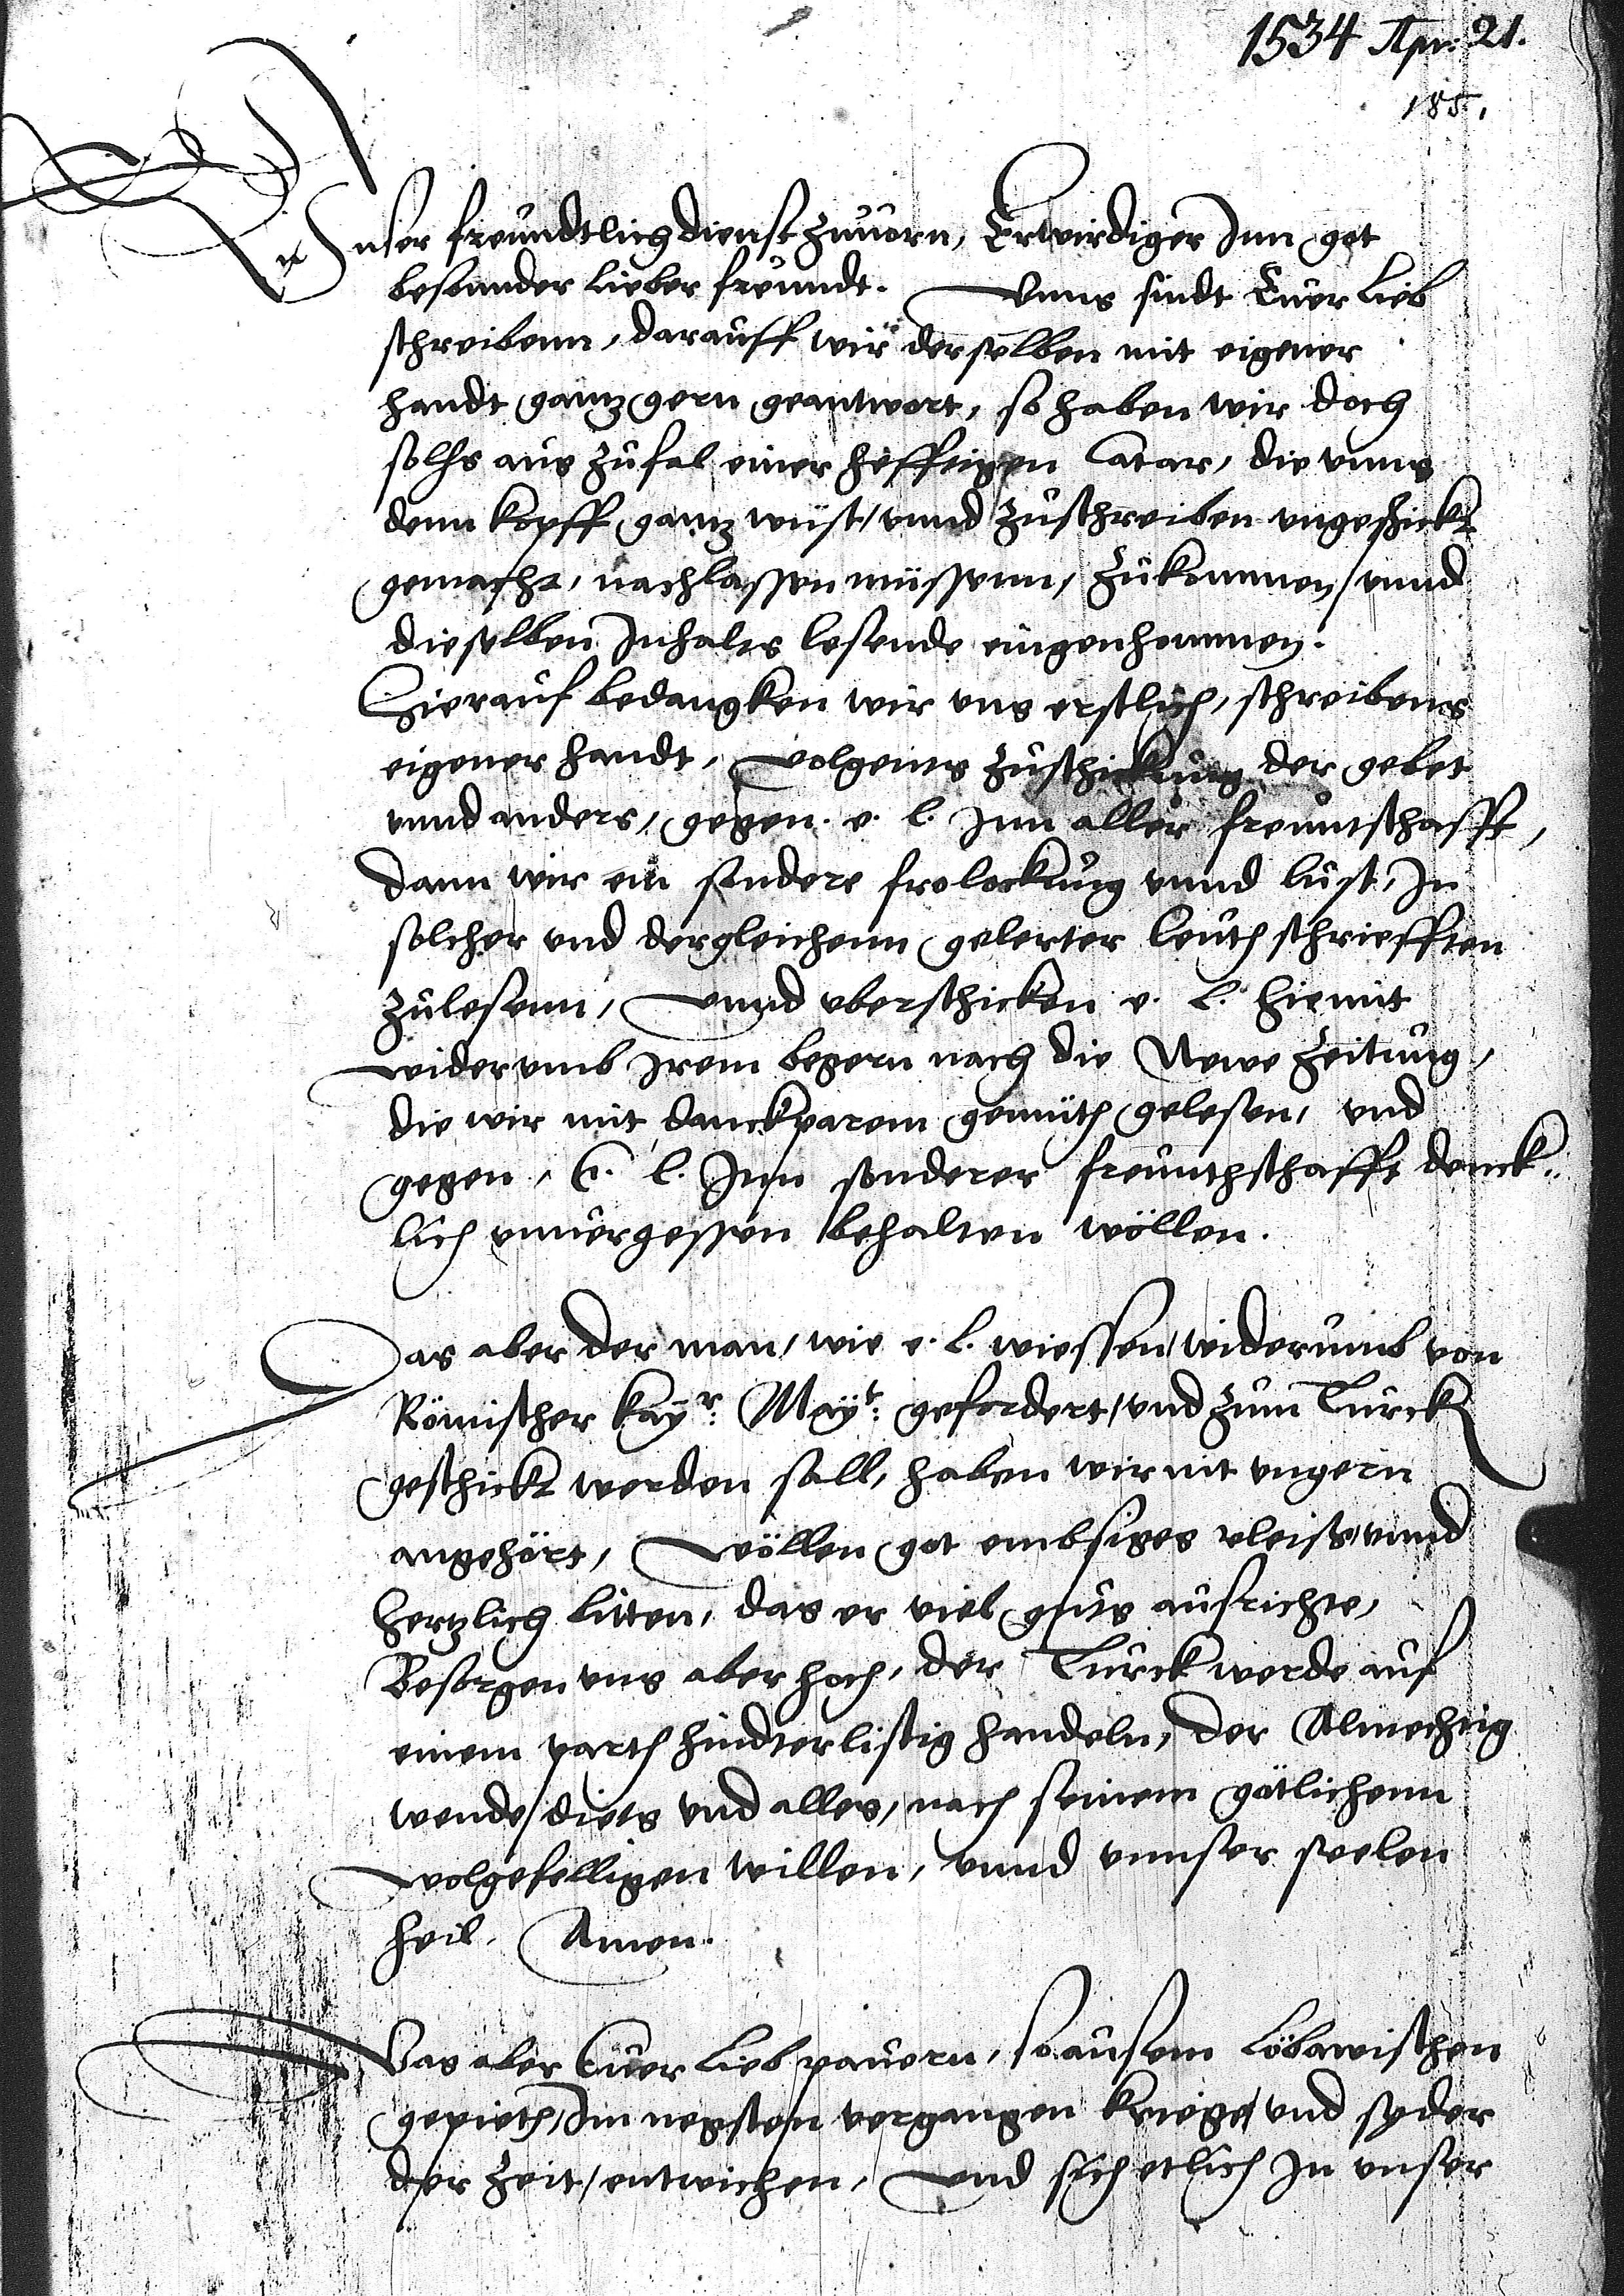 1534 Apr: 21.
185.
Unser freundtlich dienst zuuorn, Erwirdiger Inn got
besonnder lieber freundt. Vnns sindt Euer Lieb
schreibenn, darauff wir derselben mit eigener
handt gantz gern geantwort, so haben wir doch
solhs aus zufal einer hefftigen Catar, die vnns
denn kopff gantz wust, vnnd zuschreiben vngeschickt
gemacht, nachlassen müssenn, zukommen, vnnd
dieselben Inhalts lesende eingenhommen.
Hierauf bedangken wir vns erstlich, schreibens
eigener handt, volgents zuschickung der gebet
vnnd anders, gegen. e. l. Inn aller freuntschafft,
dann wir ein sondere frolockung vnnd lust, In
solcher vnd dergleichenn gelerter leuth schriefften
zulesenn, vnnd vberschicken e. l. hiemit
widerumb Irem begern nach die Newe Zeitung,
die wir mit danckparem gemüth gelesen, vnd
gegen, E. l. Inn sonderer freunthschafft denck„
lich vnuergessen behalten wöllen.
Das aber der man, wie e. l. wiessen, widerumb von
Römischer kayr: Mayt: gefordert, vnd zum Turck
geschickt werden soll, haben wir nit vngern
angehört, wöllen got embsiges vleiss, vnnd
hertzlich bitten, das er viel guts ausrichte,
Besorgen vns aber hoch, der Turck werde auf
einem parth hindterlistig handeln, der Almechtig
wende diets vnd alles, nach seinem götlichenn
wolgefelligen willen, vnnd vnnser seelen
heil. Amen.
Das aber Euer Lieb pauern, so ausem Löbawischen
gepieth, Im negsten vergangen kriege, vnd syder
der Zeit, entwichen, vnd sich etlich In vnser